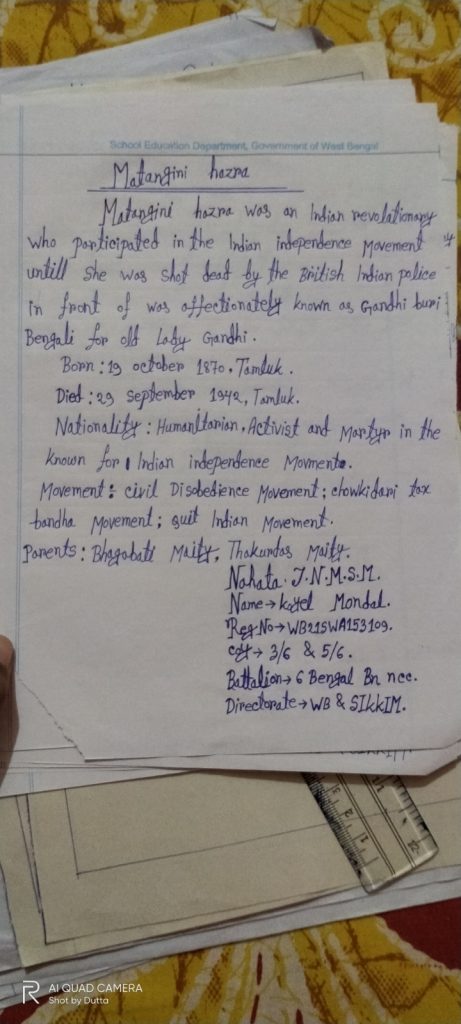 School Education Department, Government of West Bengal
Matangini hazra
Matangini hazra was an Indian revolutionary
who participated in the Indian independence Movement
untill she was shot dead by the British Indian police
in front of was affectionately known as Gandhi buri
Bengali for old Lady Gandhi.
Born : 19 october 1870, Tamluk.
Died : 29 september 1942, Tamluk.
Nationality : Humanitarian, Activist and Martyr in the
known for Indian independence Movment.
Movement : civil Disobedience Movement ; chowkidari tax
bandha Movement ; quit Indian Movement.
Parents : Bhagabati Maity, Thakurdas Maity.
Nahata J.N.M.S.M.
Name → Koyel Mondal.
Reg.No → WB21SWA153109.
coy → 3/6 & 5/6.
Battalion → 6 Bengal Bn ncc.
Directorate → WB & SIkkIM.
AI QUAD CAMERA
Shot by Dutta